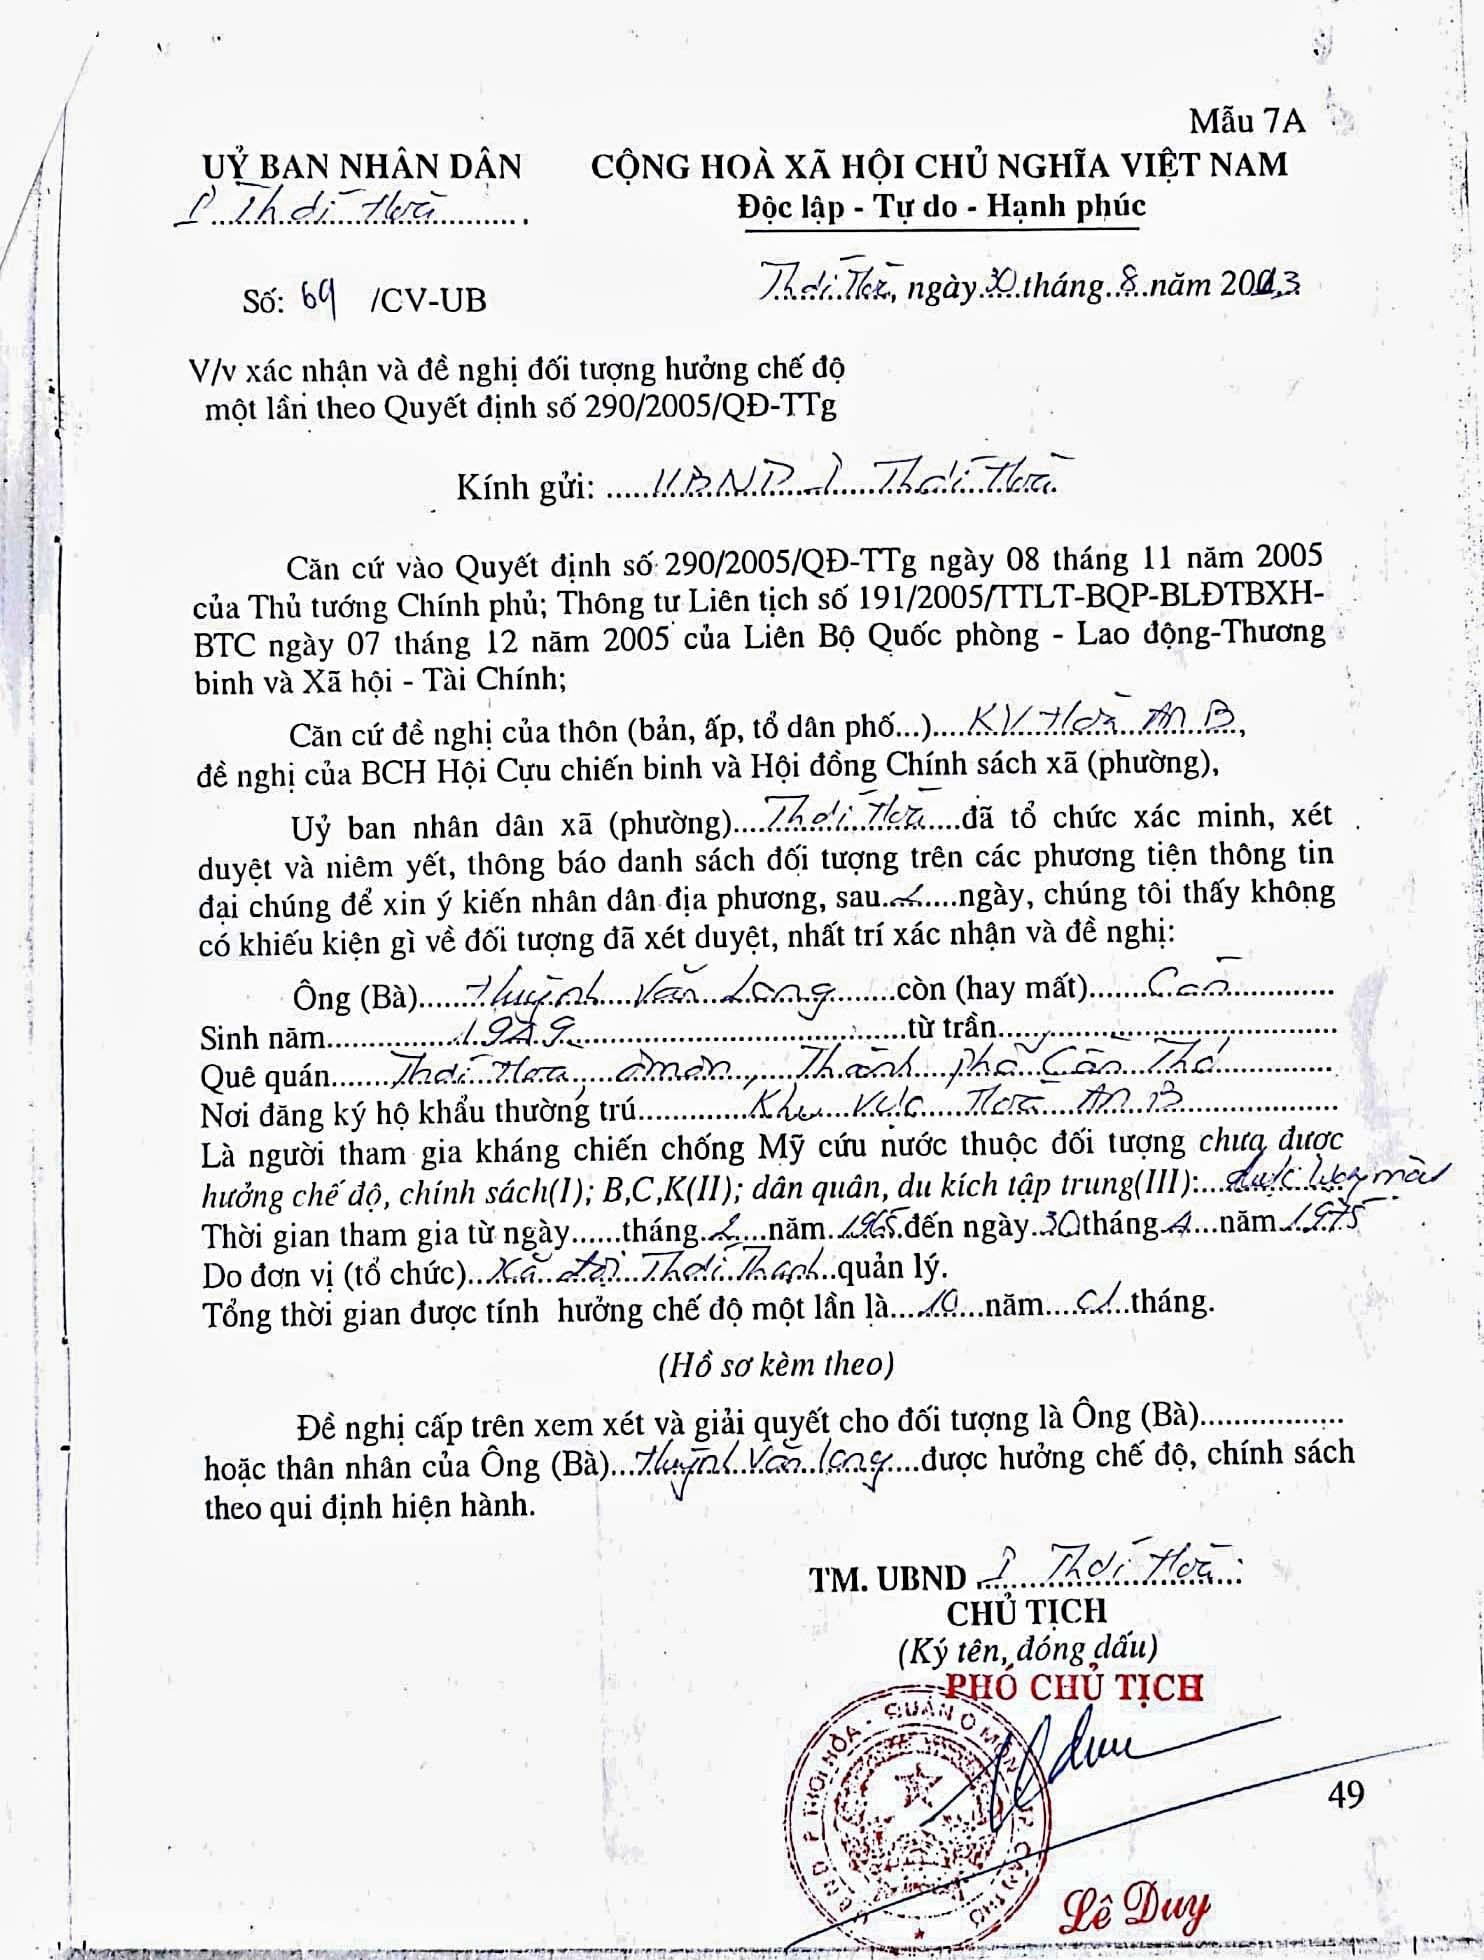 Mẫu 7A
UỶ BAN NHÂN DÂN
P Thới Hoà
CỘNG HOÀ XÃ HỘI CHỦ NGHĨA VIỆT NAM
Độc lập - Tự do - Hạnh phúc
Số: 69 /CV-UB
Thới Hoà, ngày 30 tháng 8 năm 2013
V/v xác nhận và đề nghị đối tượng hưởng chế độ
một lần theo Quyết định số 290/2005/QĐ-TTg
Kính gửi: UBND P Thới Hoà
Căn cứ vào Quyết định số 290/2005/QĐ-TTg ngày 08 tháng 11 năm 2005
của Thủ tướng Chính phủ; Thông tư Liên tịch số 191/2005/TTLT-BQP-BLĐTBXH-
BTC ngày 07 tháng 12 năm 2005 của Liên Bộ Quốc phòng - Lao động-Thương
binh và Xã hội - Tài Chính;
Căn cứ đề nghị của thôn (bản, ấp, tổ dân phố...) KV Hoà An B,
đề nghị của BCH Hội Cựu chiến binh và Hội đồng Chính sách xã (phường),
Uỷ ban nhân dân xã (phường) Thới Hoà đã tổ chức xác minh, xét
duyệt và niêm yết, thông báo danh sách đối tượng trên các phương tiện thông tin
đại chúng để xin ý kiến nhân dân địa phương, sau ngày, chúng tôi thấy không
có khiếu kiện gì về đối tượng đã xét duyệt, nhất trí xác nhận và đề nghị:
Ông (Bà) Huỳnh Văn Long còn (hay mất) Còn
Sinh năm 1949 từ trần
Quê quán Thới Hoà, Ômôn, Thành phố Cần Thơ
Nơi đăng ký hộ khẩu thường trú Khu Vực Hoà An B
Là người tham gia kháng chiến chống Mỹ cứu nước thuộc đối tượng chưa được
hưởng chế độ, chính sách(I); B,C,K(II); dân quân, du kích tập trung(III):
Thời gian tham gia từ ngày tháng 2 năm 1965 đến ngày 30 tháng 4 năm 1975
Do đơn vị (tổ chức) Xã đội Thới Thạnh quản lý.
Tổng thời gian được tính hưởng chế độ một lần là 10 năm tháng.
(Hồ sơ kèm theo)
Đề nghị cấp trên xem xét và giải quyết cho đối tượng là Ông (Bà)
hoặc thân nhân của Ông (Bà) Huỳnh Văn Long được hưởng chế độ, chính sách
theo qui định hiện hành.
TM. UBND P Thới Hoà
CHỦ TỊCH
(Ký tên, đóng dấu)
PHÓ CHỦ TỊCH
P THỚI HÒA - QUẬN Ô MÔN
49
Lê Duy